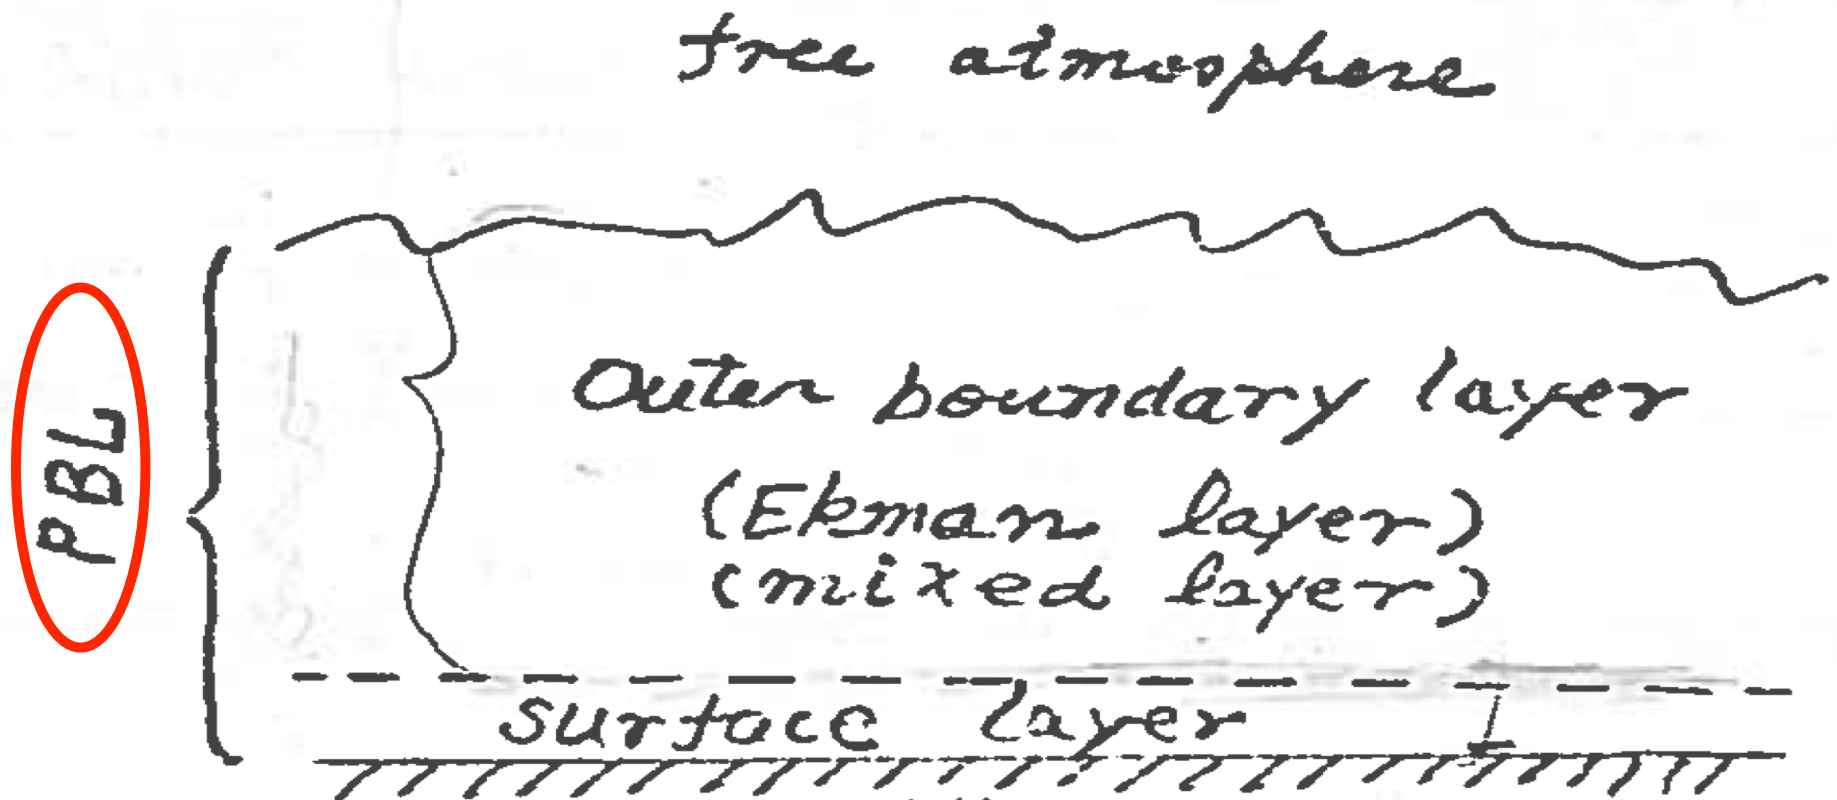 free atmosphere
PBL
Outer boundary layer
(Ekman layer)
(mixed layer)
surface layer